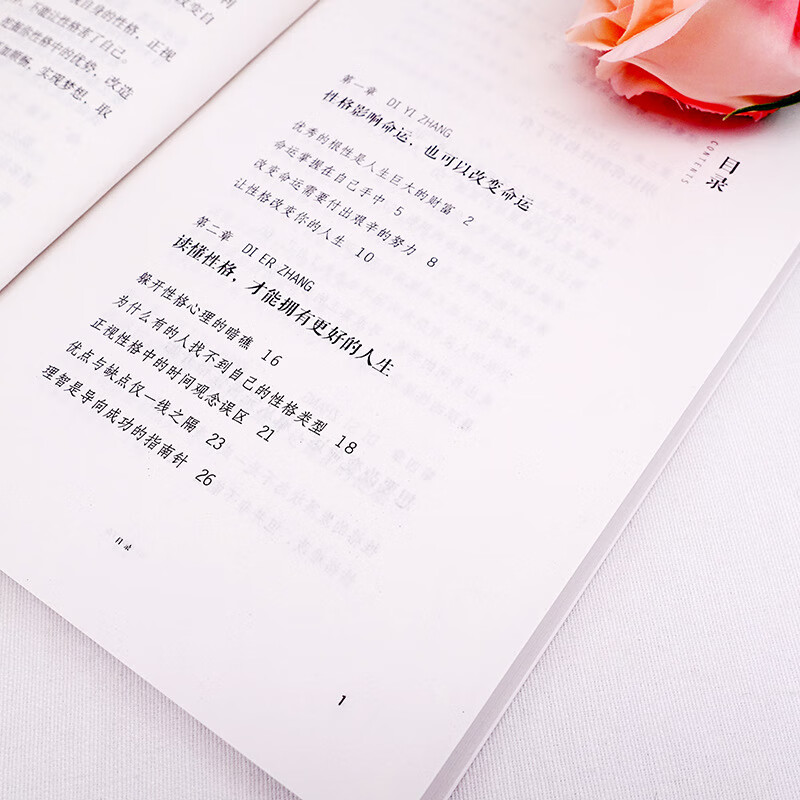 变自
自身的性格，正视
不能让性格害了自己。
性格中的优势，改造
顺畅，实现梦想，取
目录
CONTENTS
第一章 DI YI ZHANG
性格影响命运，也可以改变命运
优秀的根性是人生巨大的财富 2
命运掌握在自己手中 5
改变命运需要付出艰辛的努力 8
让性格改变你的人生 10
第二章 DI ER ZHANG
读懂性格，才能拥有更好的人生
躲开性格心理的暗礁 16
为什么有的人找不到自己的性格类型 18
正视性格中的时间观念误区 21
优点与缺点仅一线之隔 23
理智是导向成功的指南针 26
目录
1